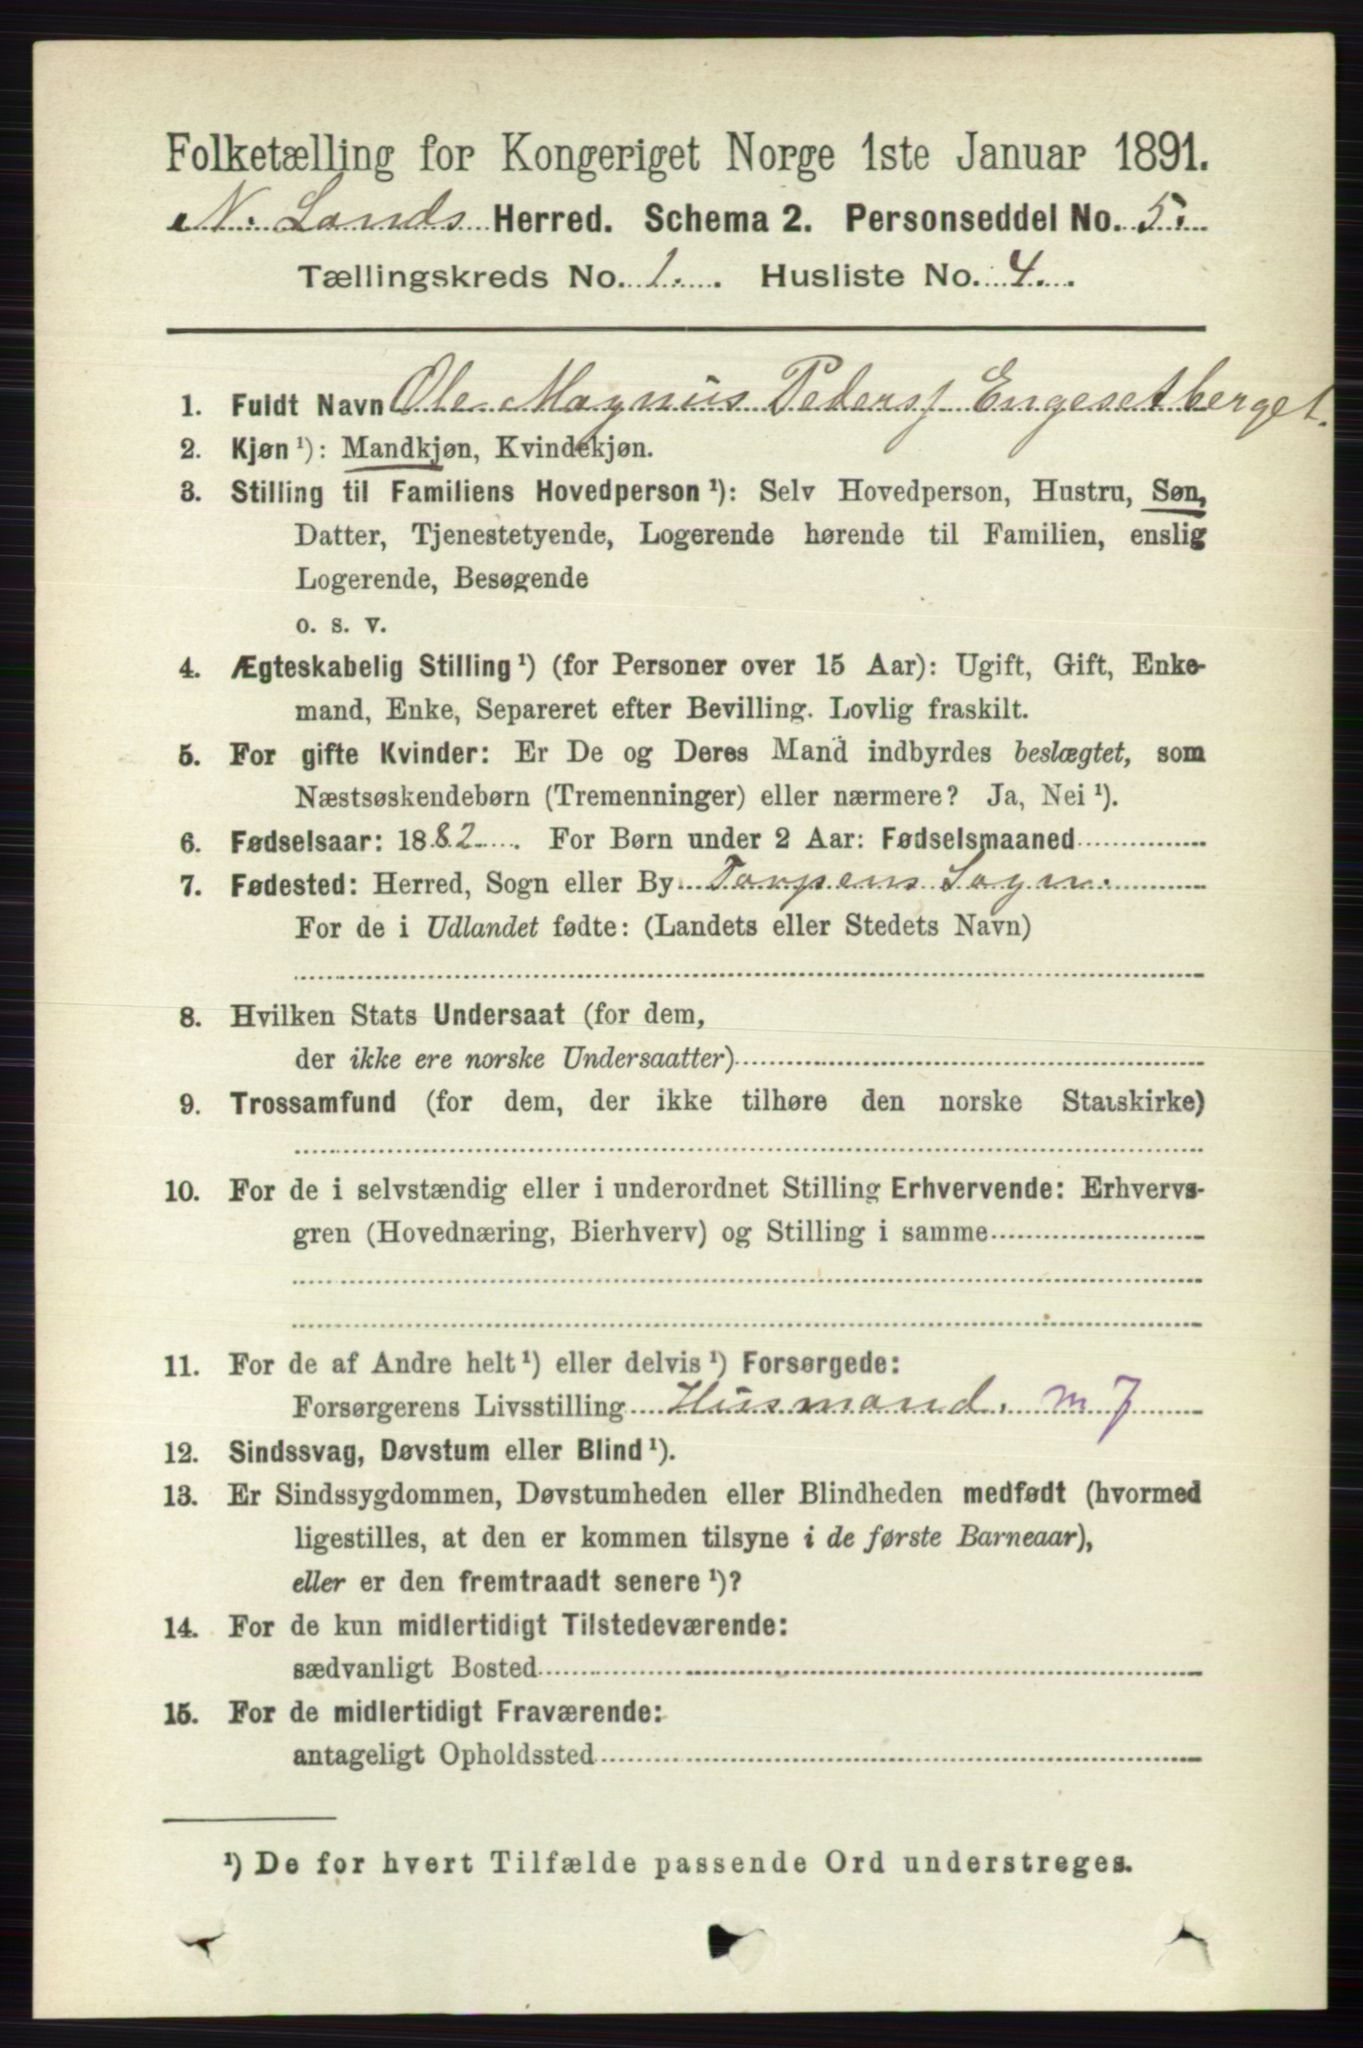 Folketælling for Kongeriget Norge 1ste Januar 1891.
N. Lands Herred. Schema 2. Personseddel No. 5.
Tællingskreds No. 1. Husliste No. 4.
1. Fuldt Navn Ole Magnus Peders. Engesetberget.
2. Kjøn ¹): Mandkjøn, Kvindekjøn.
3. Stilling til Familiens Hovedperson ¹): Selv Hovedperson, Hustru, Søn,
Datter, Tjenestetyende, Logerende hørende til Familien, enslig
Logerende, Besøgende
o. s. v.
4. Ægteskabelig Stilling ¹) (for Personer over 15 Aar): Ugift, Gift, Enke-
mand, Enke, Separeret efter Bevilling. Lovlig fraskilt.
5. For gifte Kvinder: Er De og Deres Mand indbyrdes beslægtet, som
Næstsøskendebørn (Tremenninger) eller nærmere? Ja, Nei ¹).
6. Fødselsaar: 1882. For Børn under 2 Aar: Fødselsmaaned
7. Fødested: Herred, Sogn eller By Torpens Sogn.
For de i Udlandet fødte: (Landets eller Stedets Navn)
8. Hvilken Stats Undersaat (for dem,
der ikke ere norske Undersaatter)
9. Trossamfund (for dem, der ikke tilhøre den norske Statskirke)
10. For de i selvstændig eller i underordnet Stilling Erhvervende: Erhvervs-
gren (Hovednæring, Bierhverv) og Stilling i samme
11. For de af Andre helt ¹) eller delvis ¹) Forsørgede:
Forsørgerens Livsstilling Husmand. m J
12. Sindssvag, Døvstum eller Blind ¹).
13. Er Sindssygdommen, Døvstumheden eller Blindheden medfødt (hvormed
ligestilles, at den er kommen tilsyne i de første Barneaar),
eller er den fremtraadt senere ¹)?
14. For de kun midlertidigt Tilstedeværende:
sædvanligt Bosted
15. For de midlertidigt Fraværende:
antageligt Opholdssted
¹) De for hvert Tilfælde passende Ord understreges.